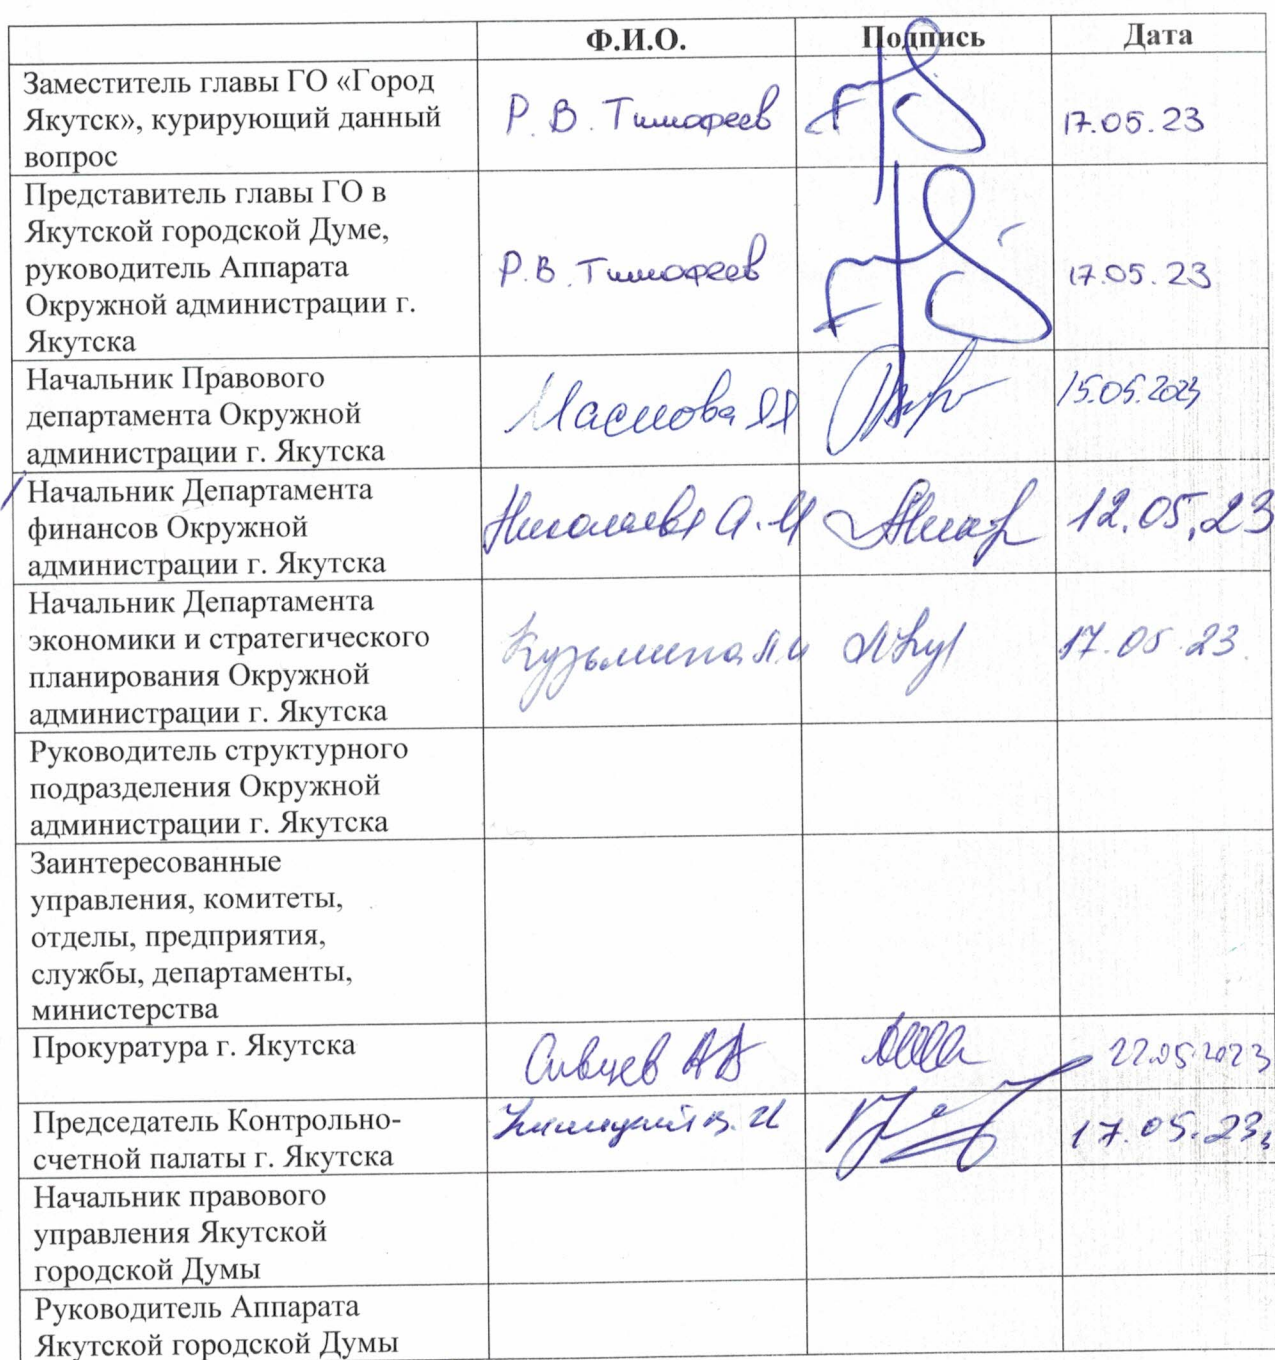 Ф.И.О. Подпись Дата
Заместитель главы ГО «Город
Якутск», курирующий данный
вопрос
Р. В. Тимофеев 17.05.23
Представитель главы ГО в
Якутской городской Думе,
руководитель Аппарата
Окружной администрации г.
Якутска
Р.В. Тимофеев 17.05.23
Начальник Правового
департамента Окружной
администрации г. Якутска
15.05.2023
Начальник Департамента
финансов Окружной
администрации г. Якутска
Николаева А.М 12.05.23
Начальник Департамента
экономики и стратегического
планирования Окружной
администрации г. Якутска
Кузьмина 17.05.23.
Руководитель структурного
подразделения Окружной
администрации г. Якутска
Заинтересованные
управления, комитеты,
отделы, предприятия,
службы, департаменты,
министерства
Прокуратура г. Якутска
Сивцев 22.05.2023
Председатель Контрольно-
счетной палаты г. Якутска
17.05.23
Начальник правового
управления Якутской
городской Думы
Руководитель Аппарата
Якутской городской Думы